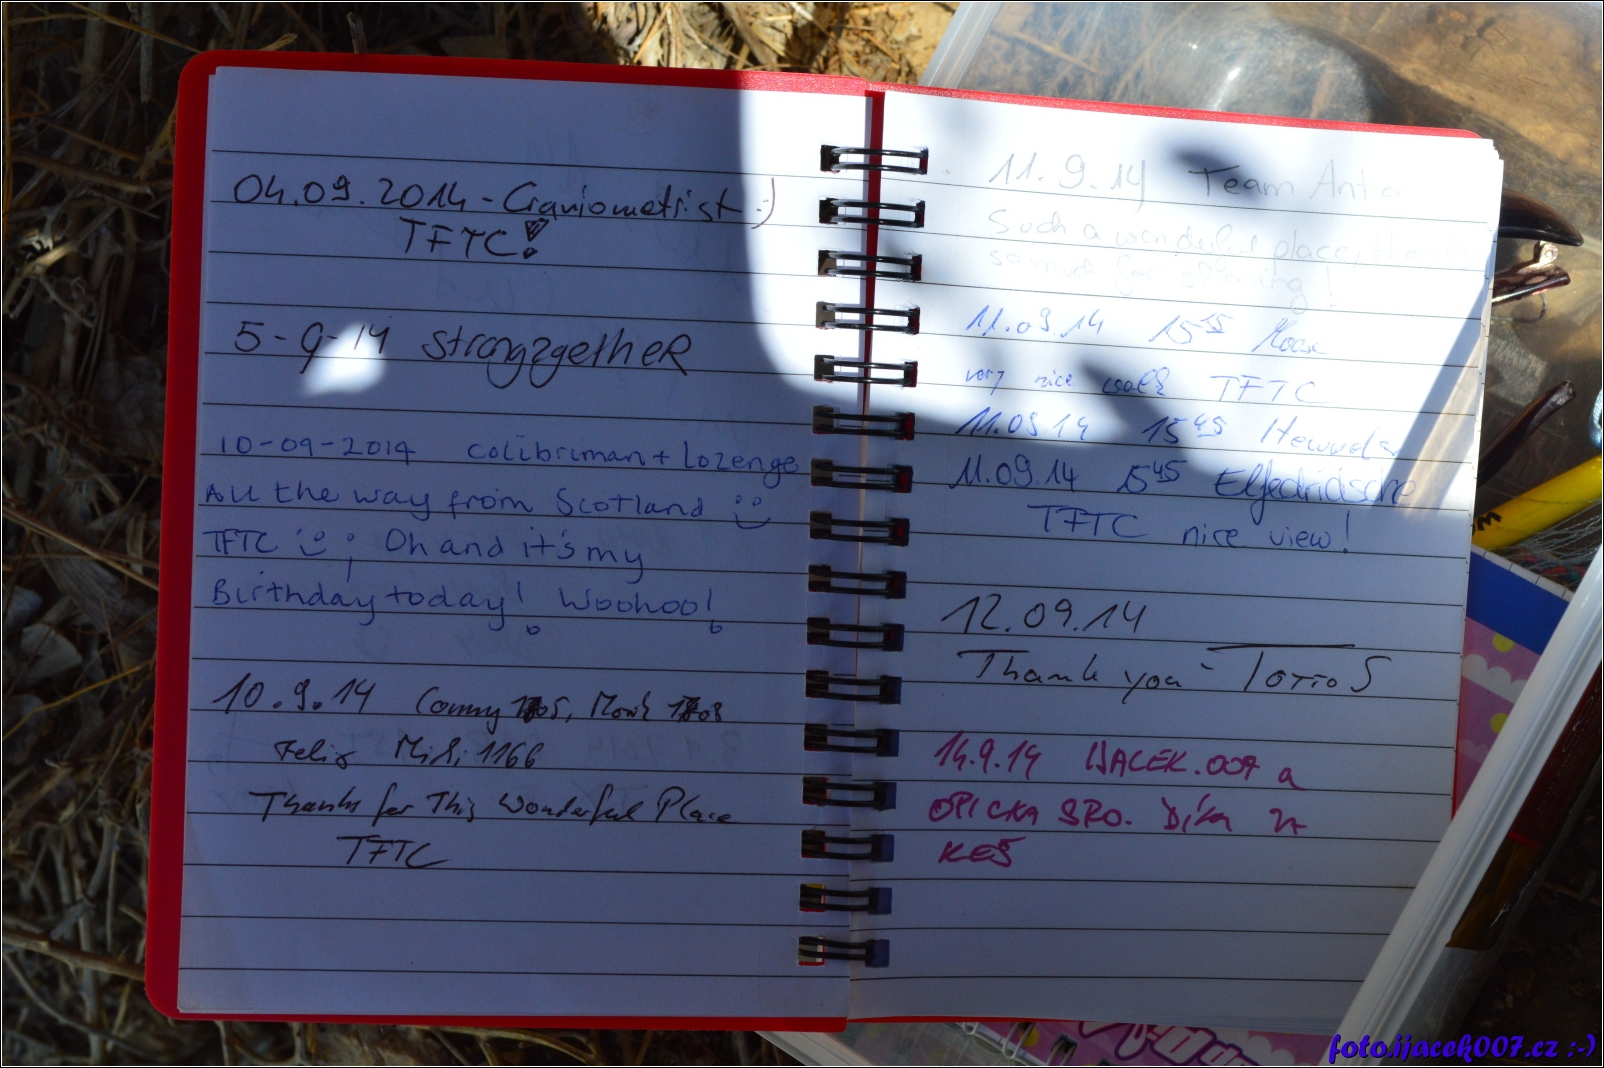 04.09.2014 - Craniometrist :)
TFTC!
5-9-14 strongzgetheR
10-09-2014 colibriman + Lozenge
All the way from Scotland
TFTC ; Oh and it's my
Birthday today! Woohoo!
10.9.14 Conny 1705, Mark 1708
Felix Michi 1166
Thanks for This Wonderful Place
TFTC
11.9.14 Team Anta
Such a wonderful place, thanks
so much for sharing!
11.09.14 15 55
very nice walk TFTC
11.09.14 15 45
11.09.14 15 45 Elfedridische
TFTC nice view!
12.09.14
Thank you - TOTTO5
14.9.14 IJACEK.007 a
OPICKA SRO. Díky za
KEŠ
foto.ijacek007.cz :-)